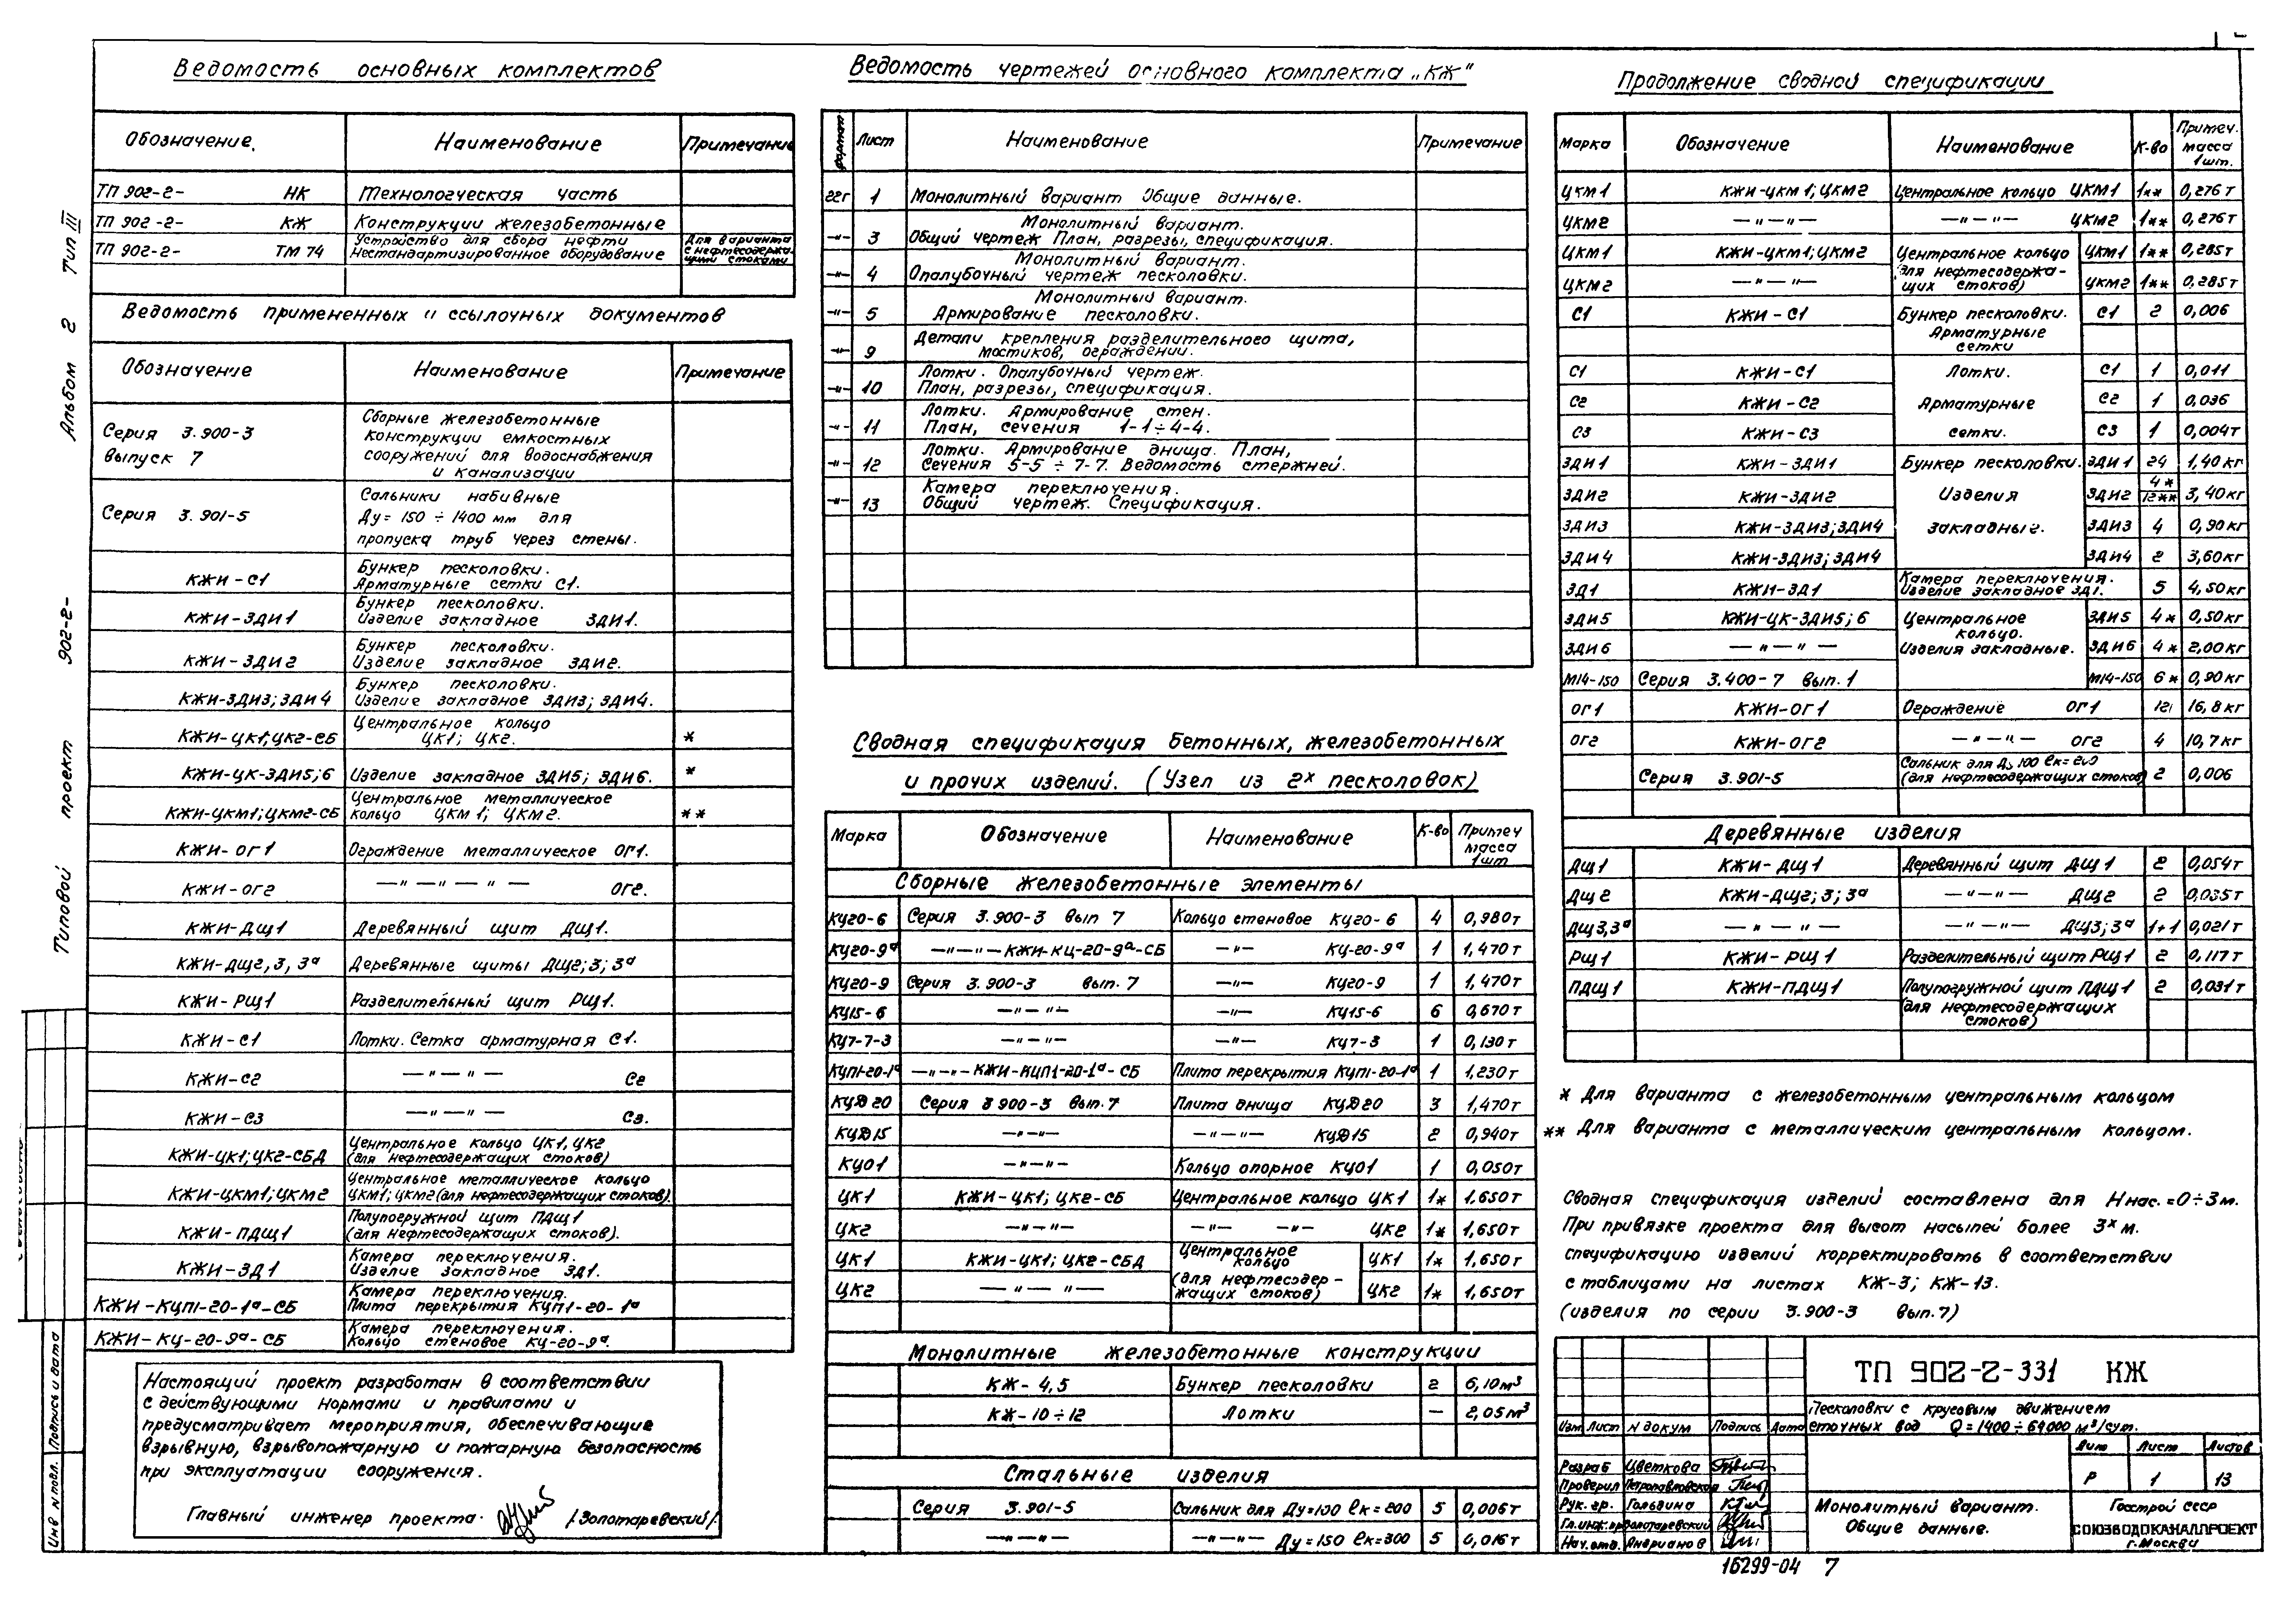 Ведомость основных комплектов
Обозначение. Наименование Примечание
ТП 902-2- НК Технологческая часть
ТП 902-2- КЖ Конструкции железобетонные
ТП 902-2- ТМ 74 Устройство для сбора нефти Нестандартизированное оборудование Для варианта с нефтесодержащими стоками
Ведомость примененных и ссылочных документов
Обозначение Наименование Примечание
Серия 3.900-3 выпуск 7 Сборные железобетонные конструкции емкостных сооружений для водоснабжения и канализации
Серия 3.901-5 Сальники набивные Ду= 150 ÷ 1400 мм для пропуска труб через стены.
КЖИ-С1 Бункер песколовки. Арматурные сетки С1.
КЖИ-ЗДИ1 Бункер песколовки. Изделие закладное ЗДИ1.
КЖИ-ЗДИ2 Бункер песколовки. Изделие закладное ЗДИ2.
КЖИ-ЗДИ3; ЗДИ4 Бункер песколовки. Изделие закладное ЗДИ3; ЗДИ4.
КЖИ-ЦК1; ЦК2-СБ Центральное кольцо ЦК1; ЦК2. *
КЖИ-ЦК-ЗДИ5;6 Изделие закладное ЗДИ5; ЗДИ6. *
КЖИ-ЦКМ1; ЦКМ2-СБ Центральное металлическое кольцо ЦКМ1; ЦКМ2. **
КЖИ-ОГ1 Ограждение металлическое ОГ1.
КЖИ-ОГ2 — " — " — " — ОГ2.
КЖИ-ДЩ1 Деревянный щит ДЩ1.
КЖИ-ДЩ2, 3, 3а Деревянные щиты ДЩ2; 3; 3а
КЖИ-РЩ1 Разделительный щит РЩ1.
КЖИ-С1 Лотки. Сетка арматурная С1.
КЖИ-С2 — " — " — С2
КЖИ-С3 — " — " — С3.
КЖИ-ЦК1; ЦК2-СБД Центральное кольцо ЦК1, ЦК2 (для нефтесодержащих стоков)
КЖИ-ЦКМ1; ЦКМ2 Центральное металлическое кольцо ЦКМ1; ЦКМ2 (для нефтесодержащих стоков).
КЖИ-ПДЩ1 Полупогружной щит ПДЩ1 (для нефтесодержащих стоков).
КЖИ-ЗД1 Камера переключения. Изделие закладное ЗД1.
КЖИ-КЦП1-20-1а-СБ Камера переключения. Плита перекрытия КЦП1-20-1а
КЖИ-КЦ-20-9а-СБ Камера переключения. Кольцо стеновое КЦ-20-9а.
Настоящий проект разработан в соответствии
с действующими нормами и правилами и
предусматривает мероприятия, обеспечивающие
взрывную, взрывопожарную и пожарную безопасность
при эксплуатации сооружения.
Главный инженер проекта. /Золотаревский/.
Типовой проект 902-2- Альбом 2 Тип III
Инв N подл. Подпись и дата
Ведомость чертежей основного комплекта „КЖ"
Формат Лист Наименование Примечание
22г 1 Монолитный вариант Общие данные.
—"— 3 Монолитный вариант. Общий чертеж План, разрезы, спецификация.
—"— 4 Монолитный вариант. Опалубочный чертеж песколовки.
—"— 5 Монолитный вариант. Армирование песколовки.
—"— 9 Детали крепления разделительного щита, мостиков, ограждений.
—"— 10 Лотки. Опалубочный чертеж. План, разрезы, спецификация.
—"— 11 Лотки. Армирование стен. План, сечения 1-1÷4-4.
—"— 12 Лотки. Армирование днища. План, Сечения 5-5 ÷ 7-7. Ведомость стержней.
—"— 13 Камера переключения. Общий чертеж. Спецификация.
Сводная спецификация бетонных, железобетонных
и прочих изделий. (Узел из 2х песколовок)
Марка Обозначение Наименование К-во Примеч масса 1шт
Сборные железобетонные элементы
КЦ20-6 Серия 3.900-3 вып 7 Кольцо стеновое КЦ20-6 4 0,980т
КЦ20-9а —"—"— КЖИ-КЦ-20-9а-СБ —"— КЦ-20-9а 1 1,470т
КЦ20-9 Серия 3.900-3 вып. 7 —"— КЦ20-9 1 1,470т
КЦ15-6 —"—"— —"— КЦ15-6 6 0,670т
КЦ7-7-3 —"—"— —"— КЦ7-3 1 0,130т
КЦП1-20-1а —"—"— КЖИ-КЦП1-20-1а-СБ Плита перекрытия КЦП1-20-1а 1 1,230т
КЦД20 Серия 3 900-3 вып. 7 Плита днища КЦД20 3 1,470т
КЦД15 —"—"— —"—"— КЦД15 2 0,940т
КЦО1 —"—"— Кольцо опорное КЦО1 1 0,050т
ЦК1 КЖИ-ЦК1; ЦК2-СБ Центральное кольцо ЦК1 1* 1,650т
ЦК2 —"—"— —"— —"— ЦК2 1* 1,650т
ЦК1 КЖИ-ЦК1; ЦК2-СБД Центральное кольцо ЦК1 1* 1,650т
ЦК2 — " — " — (для нефтесодержащих стоков) ЦК2 1* 1,650т
Монолитные железобетонные конструкции
КЖ-4,5 Бункер песколовки 2 6,10м³
КЖ-10÷12 Лотки — 2,05м³
Стальные изделия
Серия 3.901-5 Сальник для Ду=100 ℓк=200 5 0,006т
—"—"— —"—"— Ду=150 ℓк=300 5 0,016т
Продолжение сводной спецификации
Марка Обозначение Наименование К-во Примеч. масса 1шт.
ЦКМ1 КЖИ-ЦКМ1; ЦКМ2 Центральное кольцо ЦКМ1 1** 0,276т
ЦКМ2 —"—"— —"—"— ЦКМ2 1** 0,276т
ЦКМ1 КЖИ-ЦКМ1; ЦКМ2 Центральное кольцо ЦКМ1 1** 0,285т
ЦКМ2 —"—"— (для нефтесодержащих стоков) ЦКМ2 1** 0,285т
С1 КЖИ-С1 Бункер песколовки. Арматурные сетки С1 2 0,006
С1 КЖИ-С1 Лотки. С1 1 0,011
С2 КЖИ-С2 Арматурные С2 1 0,036
С3 КЖИ-С3 сетки. С3 1 0,004т
ЗДИ1 КЖИ-ЗДИ1 Бункер песколовки. ЗДИ1 24 1,40кг
ЗДИ2 КЖИ-ЗДИ2 Изделия ЗДИ2 4* 12** 3,40кг
ЗДИ3 КЖИ-ЗДИ3; ЗДИ4 закладные. ЗДИ3 4 0,90кг
ЗДИ4 КЖИ-ЗДИ3; ЗДИ4 ЗДИ4 2 3,60кг
ЗД1 КЖИ-ЗД1 Камера переключения. Изделие закладное ЗД1. 5 4,50кг
ЗДИ5 КЖИ-ЦК-ЗДИ5; 6 Центральное кольцо. ЗДИ5 4* 0,50кг
ЗДИ6 —"—"— Изделия закладные. ЗДИ6 4* 2,00кг
М14-150 Серия 3.400-7 вып. 1 М14-150 6* 0,90кг
ОГ1 КЖИ-ОГ1 Ограждение ОГ1 12 16,8кг
ОГ2 КЖИ-ОГ2 —"—"— ОГ2 4 10,7кг
Серия 3.901-5 Сальник для Ду 100 ℓк=200 (для нефтесодержащих стоков) 2 0,006
Деревянные изделия
ДЩ1 КЖИ-ДЩ1 Деревянный щит ДЩ1 2 0,054т
ДЩ2 КЖИ-ДЩ2; 3; 3а —"—"— ДЩ2 2 0,035т
ДЩ3,3а —"—"— —"—"— ДЩ3; 3а 1+1 0,021т
РЩ1 КЖИ-РЩ1 Разделительный щит РЩ1 2 0,117т
ПДЩ1 КЖИ-ПДЩ1 Полупогружной щит ПДЩ1 (для нефтесодержащих стоков) 2 0,031т
* Для варианта с железобетонным центральным кольцом
** Для варианта с металлическим центральным кольцом.
Сводная спецификация изделий составлена для Ннас.=0÷3м.
При привязке проекта для высот насыпей более 3х м.
спецификацию изделий корректировать в соответствии
с таблицами на листах КЖ-3; КЖ-13.
(изделия по серии 3.900-3 вып. 7)
ТП 902-2-331 КЖ
Песколовки с круговым движением
сточных вод Q=1400÷64000 м³/сут.
Изм Лист N докум Подпись Дата
Разраб Цветкова
Проверил Петропавловская
Рук. гр. Гольдина
Гл.инж.пр Золотаревский
Нач. отд. Андрианов
Лит Лист Листов
Р 1 13
Монолитный вариант.
Общие данные.
Госстрой СССР
СОЮЗВОДОКАНАЛПРОЕКТ
г. Москва
16299-04 7